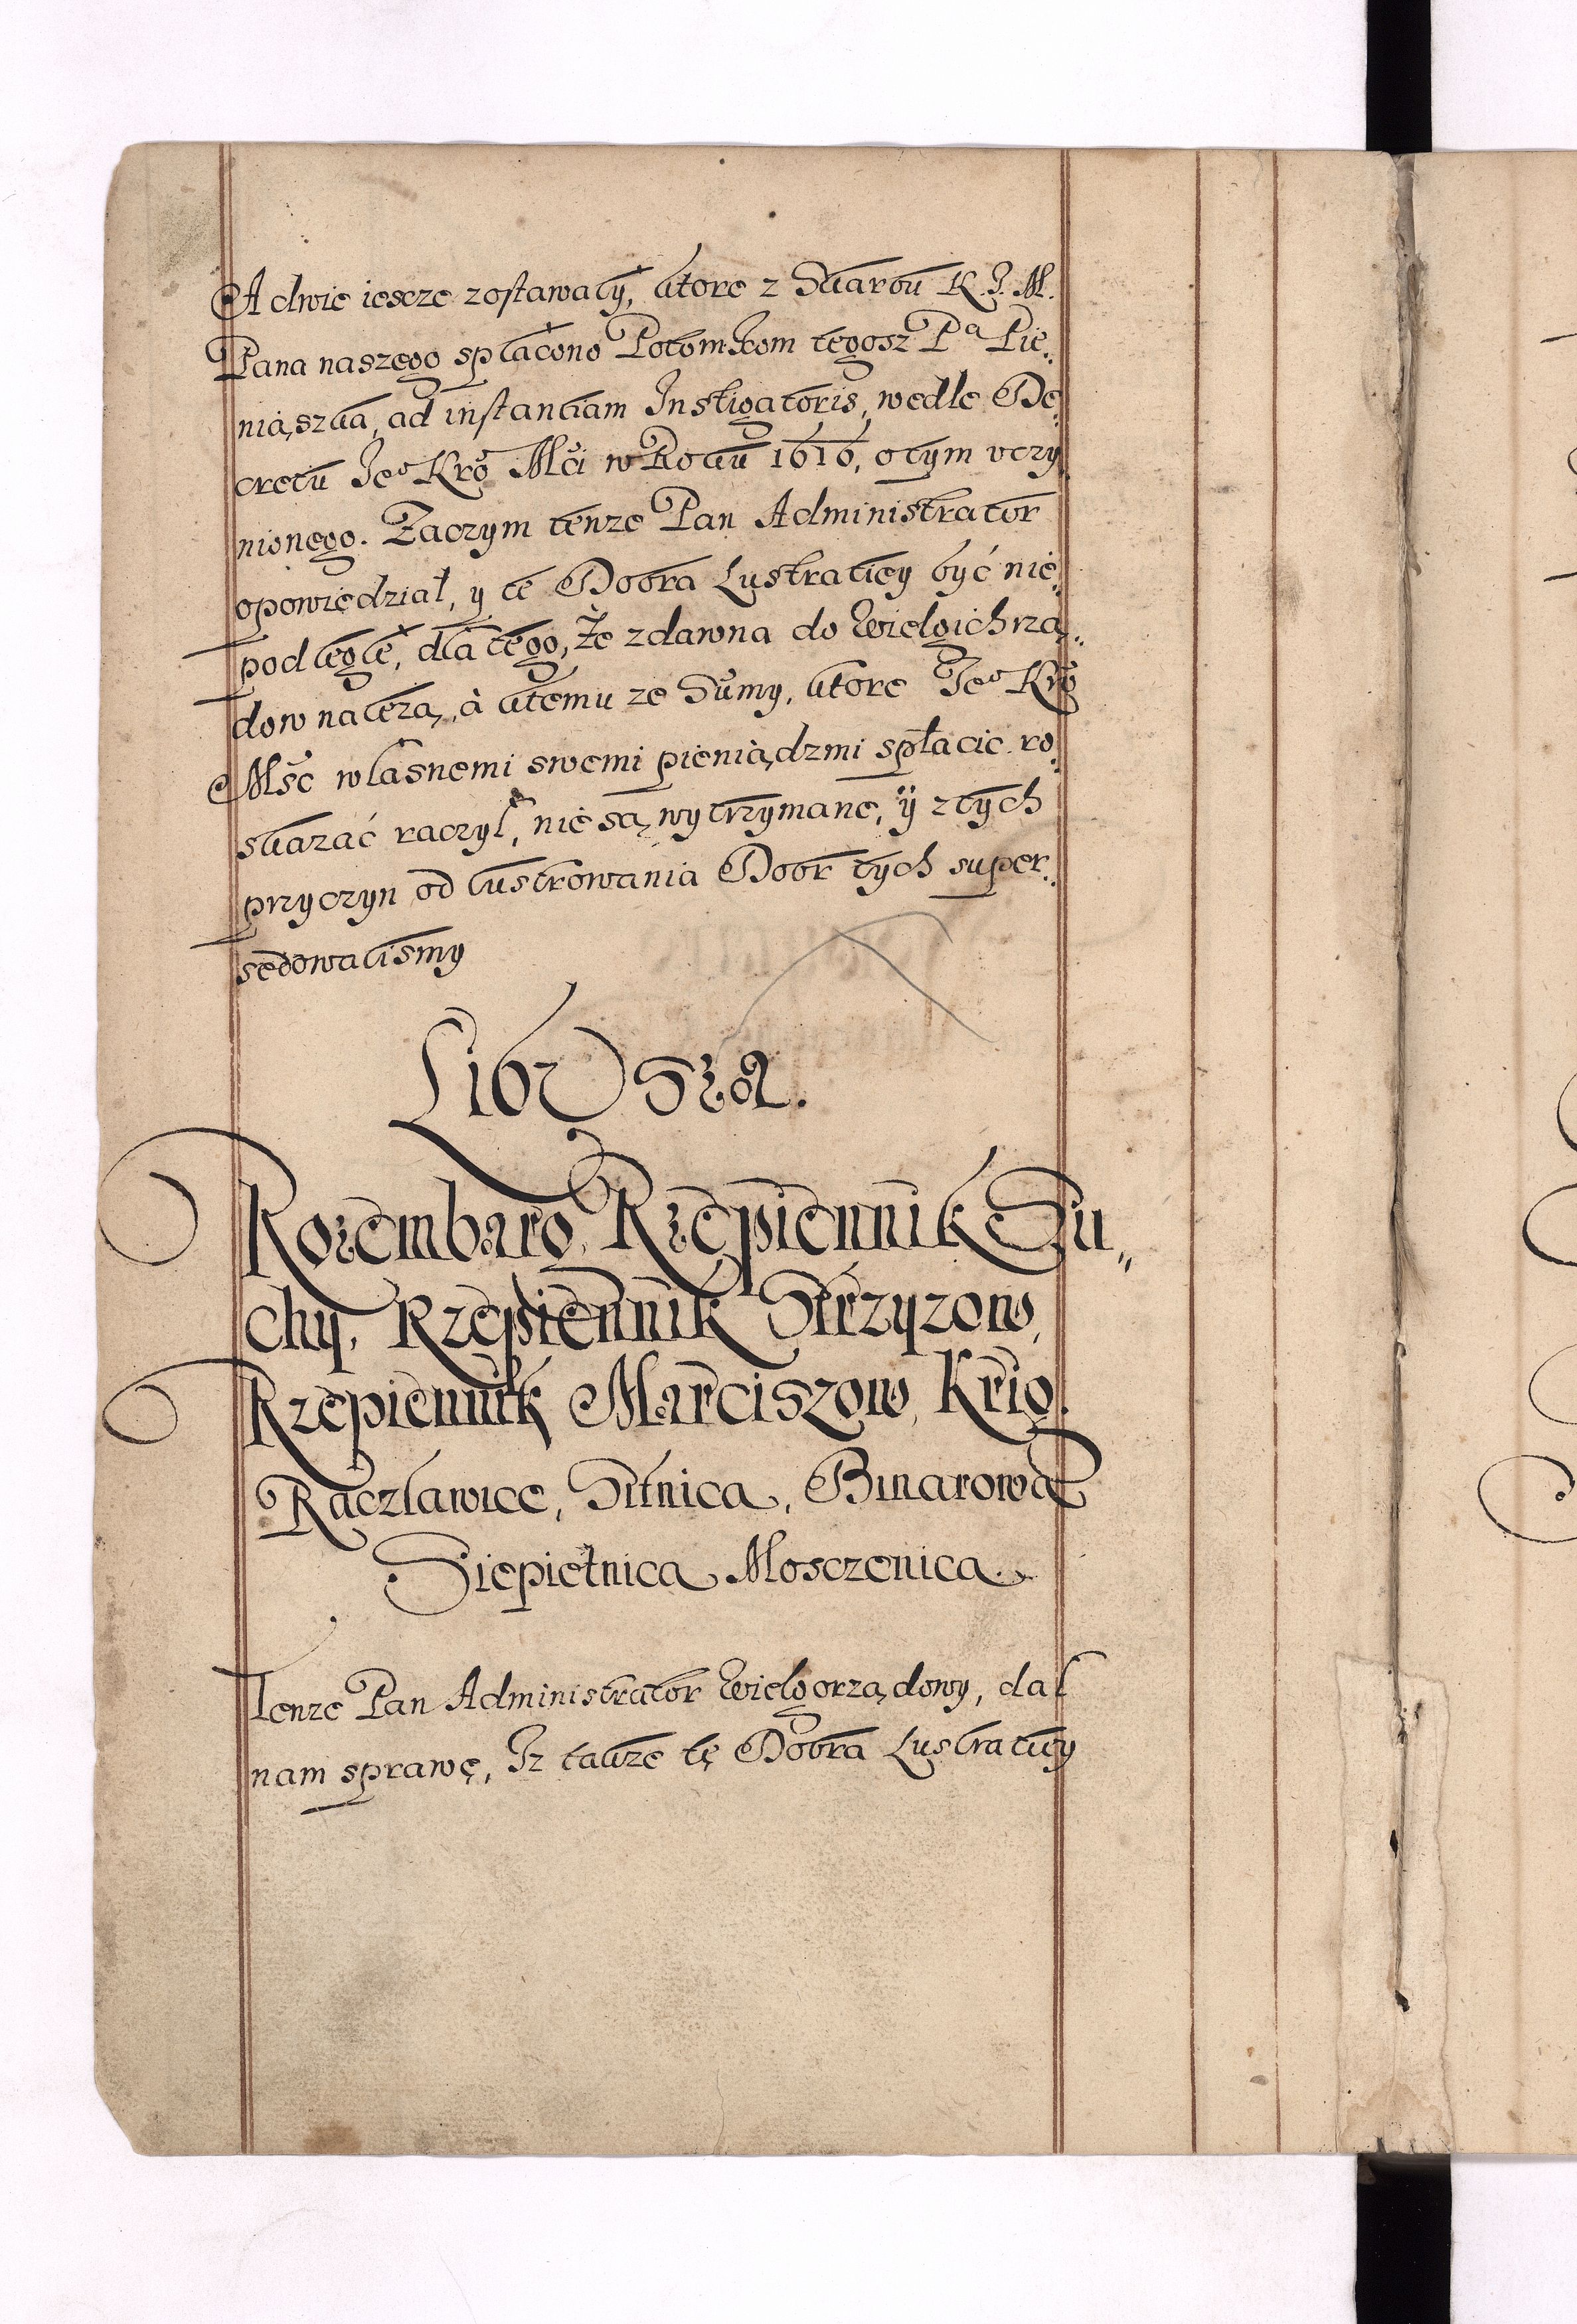 A dwie iescze zostawały, ktore z Skarbu K. J. M.
Pana naszego spłacono Potomkom tegosz Pa Pie„
niąszka, ad instantiam Instigatoris, wedle De„
cretu Jeo Kro Mści w Roku 1616, o tym vczy„
nionego. Zaczym tenze Pan Administrator
opowiedział, y te Dobra Lustratiey być nie„
podległe, dla tego, Że zdawna do Wielgich rzą„
dow należą, à ktemu ze Summy, ktore Jeo Kro
Msc własnemi swemi pieniądzmi spłacic ro„
skazać raczył, nie są wytrzymane, ÿ z tych
przyczyn od lustrowania Dobr tych super„
sedowalismy
Libusza.
Rozembarg, Rzepiennik Su„
chy, Rzepiennik Strzyzow,
Rzepiennik Marciszow, Krig.
Raczławice, Sitnica, Binarowa
Siepietnica Mosczenica.
Tenze Pan Administrator Wielgorządowy, dał
nam sprawę, Iz takze tę Dobra Lustratiey